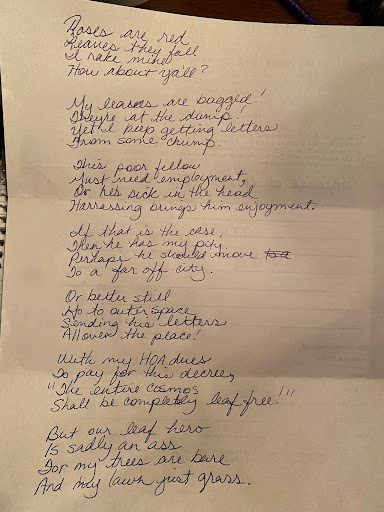 Roses are red
Leaves they fall
I rake mine
How about ya'll?
My leaves are bagged!
They're at the dump.
Yet I keep getting letters
From some chump.
This poor fellow
Must need employment,
Or he's sick in the head
Harrassing brings him enjoyment.
If that is the case,
Then he has my pity.
Perhaps he should move
To a far off city.
Or better still
Go to outer space,
Sending his letters
All over the place!
With my HOA dues
To pay for this decree,
"The entire cosmos
Shall be completely leaf free!"
But our leaf hero
Is sadly an ass
For my trees are bare
And my lawn just grass.